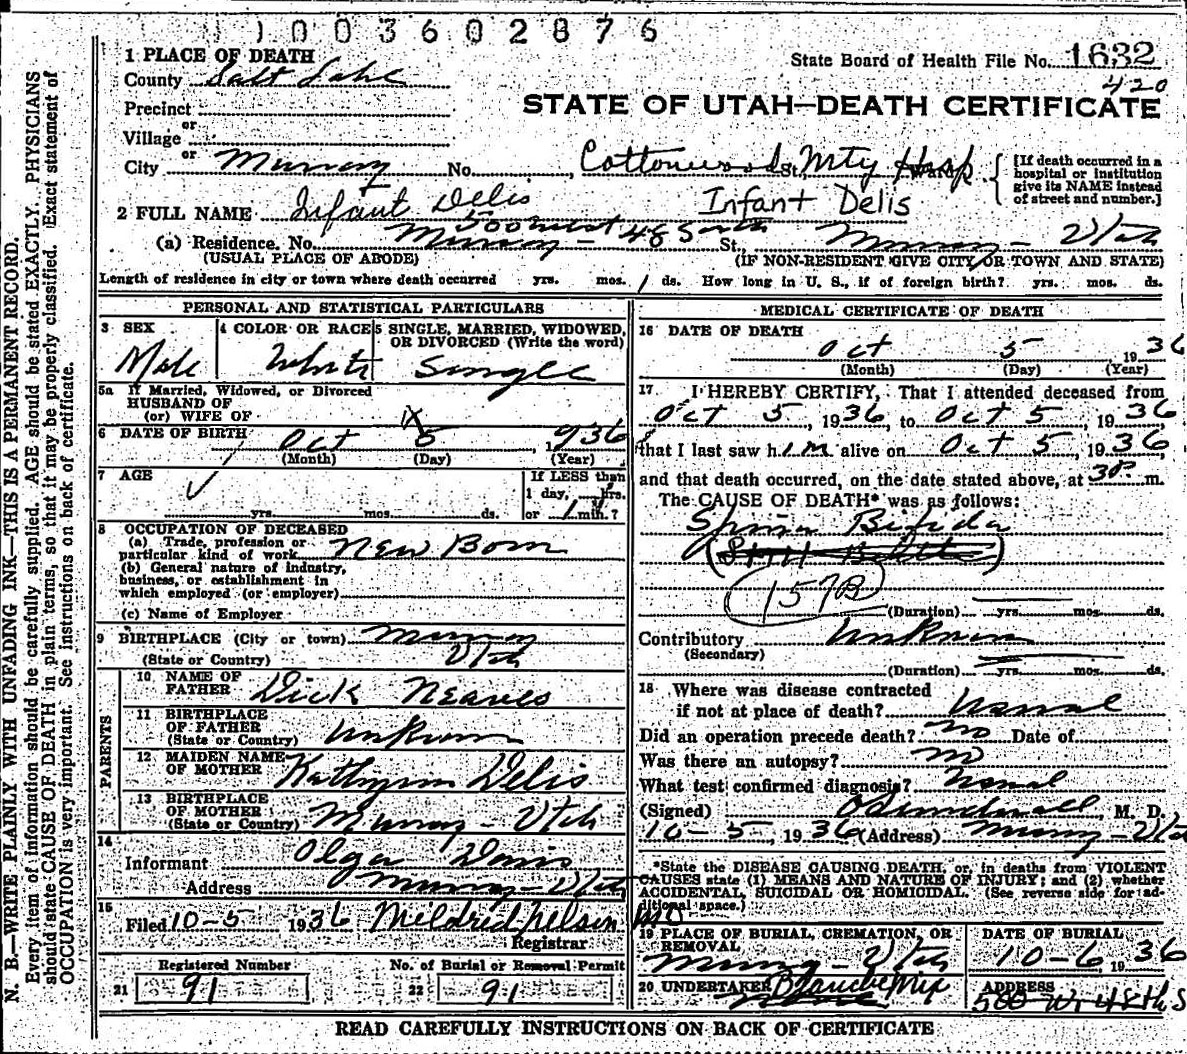 1003602876
1 PLACE OF DEATH
State Board of Health File No. 1632
County Salt Lake
420
Precinct
STATE OF UTAH—DEATH CERTIFICATE
or
Village
or
City Murray No. Cottonwood St. Mty Hosp Ward
[If death occurred in a
hospital or institution
give its NAME instead
of street and number.]
2 FULL NAME Infant Delis Infant Delis
500 West 48 South
(a) Residence. No. Murray - St., Murray - Utah
(USUAL PLACE OF ABODE) (IF NON-RESIDENT GIVE CITY OR TOWN AND STATE)
Length of residence in city or town where death occurred yrs. mos. 1 ds. How long in U. S., if of foreign birth? yrs. mos. ds.
PERSONAL AND STATISTICAL PARTICULARS
3 SEX
Male
4 COLOR OR RACE
White
5 SINGLE, MARRIED, WIDOWED,
OR DIVORCED (Write the word)
Single
5a If Married, Widowed, or Divorced
HUSBAND OF
(or) WIFE OF
6 DATE OF BIRTH Oct 5 1936
(Month) (Day) (Year)
7 AGE
yrs. mos. ds.
If LESS than
1 day, hrs.
or 1 min.?
8 OCCUPATION OF DECEASED
(a) Trade, profession or
particular kind of work New Born
(b) General nature of industry,
business, or establishment in
which employed (or employer)
(c) Name of Employer
9 BIRTHPLACE (City or town) Murray
(State or Country) Utah
PARENTS
10 NAME OF
FATHER Dick Neaves
11 BIRTHPLACE
OF FATHER
(State or Country) Unknown
12 MAIDEN NAME
OF MOTHER Kathrynn Delis
13 BIRTHPLACE
OF MOTHER
(State or Country) Murray - Utah
14
Informant Olga Davis
Address Murray - Utah
15
Filed 10-5 1936 Mildred Nelson
Registrar
Registered Number
21 91
No. of Burial or Removal Permit
22 91
MEDICAL CERTIFICATE OF DEATH
16 DATE OF DEATH
Oct 5, 1936
(Month) (Day) (Year)
17 I HEREBY CERTIFY, That I attended deceased from
Oct 5, 1936, to Oct 5, 1936
that I last saw him alive on Oct 5, 1936
and that death occurred, on the date stated above, at m.
The CAUSE OF DEATH* was as follows:
Spina Bifida
157B
(Duration) yrs. mos. ds.
Contributory Unknown
(Secondary)
(Duration) yrs. mos. ds.
18 Where was disease contracted
if not at place of death?
Did an operation precede death? no Date of
Was there an autopsy? no
What test confirmed diagnosis?
(Signed) M. D.
10-5, 1936 (Address) Murray - Utah
*State the DISEASE CAUSING DEATH, or, in deaths from VIOLENT
CAUSES state (1) MEANS AND NATURE OF INJURY; and (2) whether
ACCIDENTAL, SUICIDAL OR HOMICIDAL. (See reverse side for ad-
ditional space.)
19 PLACE OF BURIAL, CREMATION, OR
REMOVAL
Murray - Utah
DATE OF BURIAL
10-6, 1936
20 UNDERTAKER Blanche Mix
ADDRESS
500 W 48th S
READ CAREFULLY INSTRUCTIONS ON BACK OF CERTIFICATE
N. B.—WRITE PLAINLY WITH UNFADING INK—THIS IS A PERMANENT RECORD.
Every item of information should be carefully supplied. AGE should be stated EXACTLY. PHYSICIANS
should state CAUSE OF DEATH in plain terms, so that it may be properly classified. Exact statement of
OCCUPATION is very important. See instructions on back of certificate.